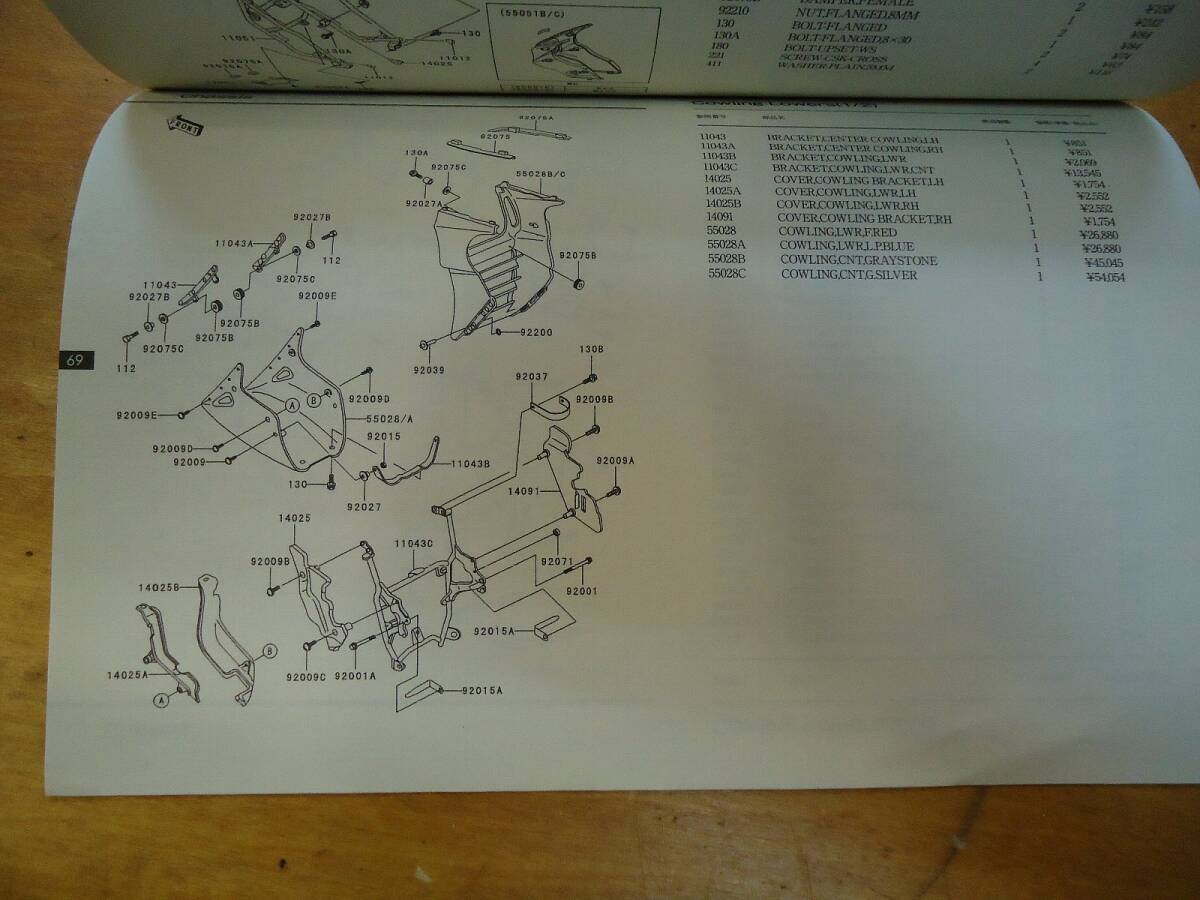 (55051B/C)
130
11051
130A
92075A
14025
11012
92210 NUT,FLANGED,8MM
130 BOLT-FLANGED
130A BOLT-FLANGED,8×30
180 BOLT-UPSET-WS
221 SCREW-CSK-CROSS
411 WASHER-PLAIN,5MM
Chassis
Cowling Lowers(1/2)
FRONT
92075A
92075
130A
92075C
55028B/C
92027A
92027B
11043A
112
92075C
92075B
11043
92027B
92009E
92075B
92075B
92075C
112
92200
92039
69
130B
92037
92009D
92009B
A
B
92009E
55028/A
92015
92009D
92009
11043B
92009A
130
92027
14091
14025
11043C
92009B
92071
14025B
92001
92015A
B
14025A
92009C
92001A
A
92015A
11043 BRACKET,CENTER COWLING,LH 1 ¥851
11043A BRACKET,CENTER COWLING,RH 1 ¥851
11043B BRACKET,COWLING,LWR 1 ¥2,969
11043C BRACKET,COWLING,LWR,CNT 1 ¥13,545
14025 COVER,COWLING BRACKET,LH 1 ¥1,754
14025A COVER,COWLING,LWR,LH 1 ¥2,552
14025B COVER,COWLING,LWR,RH 1 ¥2,552
14091 COVER,COWLING BRACKET,RH 1 ¥1,754
55028 COWLING,LWR,F.RED 1 ¥26,880
55028A COWLING,LWR,L.P.BLUE 1 ¥26,880
55028B COWLING,CNT,GRAYSTONE 1 ¥45,045
55028C COWLING,CNT,G.SILVER 1 ¥54,054